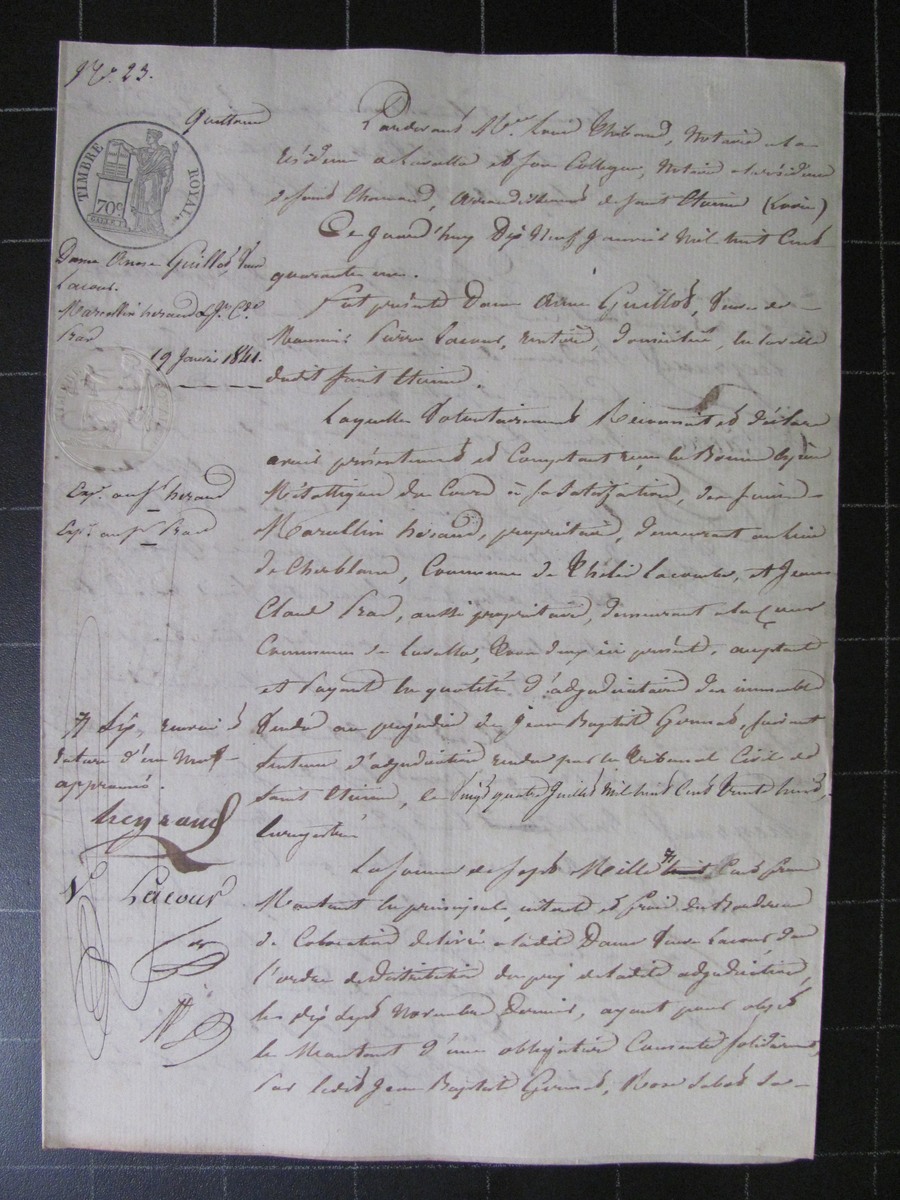 N.º 23.
Quittance
TIMBRE ROYAL
70 c
Dame Anne Guillot, Veuve
Lacour.
Marcellin heraud & Jn. Cde.
Prad
19 Janvier 1841.
Exp. au Sr. heraud
Exp. au Sr. Prad
Pardevant Mtre. Louis Thibaud, Notaire à la
résidence de Lavalla et son Collegue, Notaire à la résidence
de Saint Chamond, Arrondissement de Saint Etienne (Loire)
Ce jourd'huy Dix Neuf Janvier Mil huit Cent
quarante un.
Fut présente Dame Anne Guillot, Veuve de
Pierre Lacour, rentière, domiciliée, en la ville
dudit Saint Etienne.
Laquelle Volontairement Reconnait et déclare
avoir présentement et Comptant reçu en Bonnes Espèces
Métalliques du Cours à sa Satisfaction, des sieurs
Marcellin héraud, propriétaire, demeurant au lieu
de Cherblanc, Commune de Thélis Lacombe, et Jean
Claude Prad, aussi propriétaire, demeurant à
Commune de Lavalla, tous deux ici présent, acceptant
et Payant en qualité d'adjudicataire des immeubles
Vendu au préjudice de Jean Baptiste, suivant
Sentence d'adjudication rendue par le Tribunal Civil de
Saint Etienne, le Vingt quatre Juillet Mil huit Cent Trente huit,
Enregistrée
La Somme de Sept Mille Cent franc
Montant en principal, intérêt et frais du Bordereau
de Colocation délivré à ladite Dame Veuve Lacour dans
l'ordre de distribution du prix de ladite adjudication,
le dix Sept Novembre Dernier, ayant pour objet
le Montant d'une obligation Consentie solidairement,
Par ledit Jean Baptiste, Rose Sabot Sa
Sept, renvoi &
rature d'un Mot
approuvés.
heyraud
Lacour